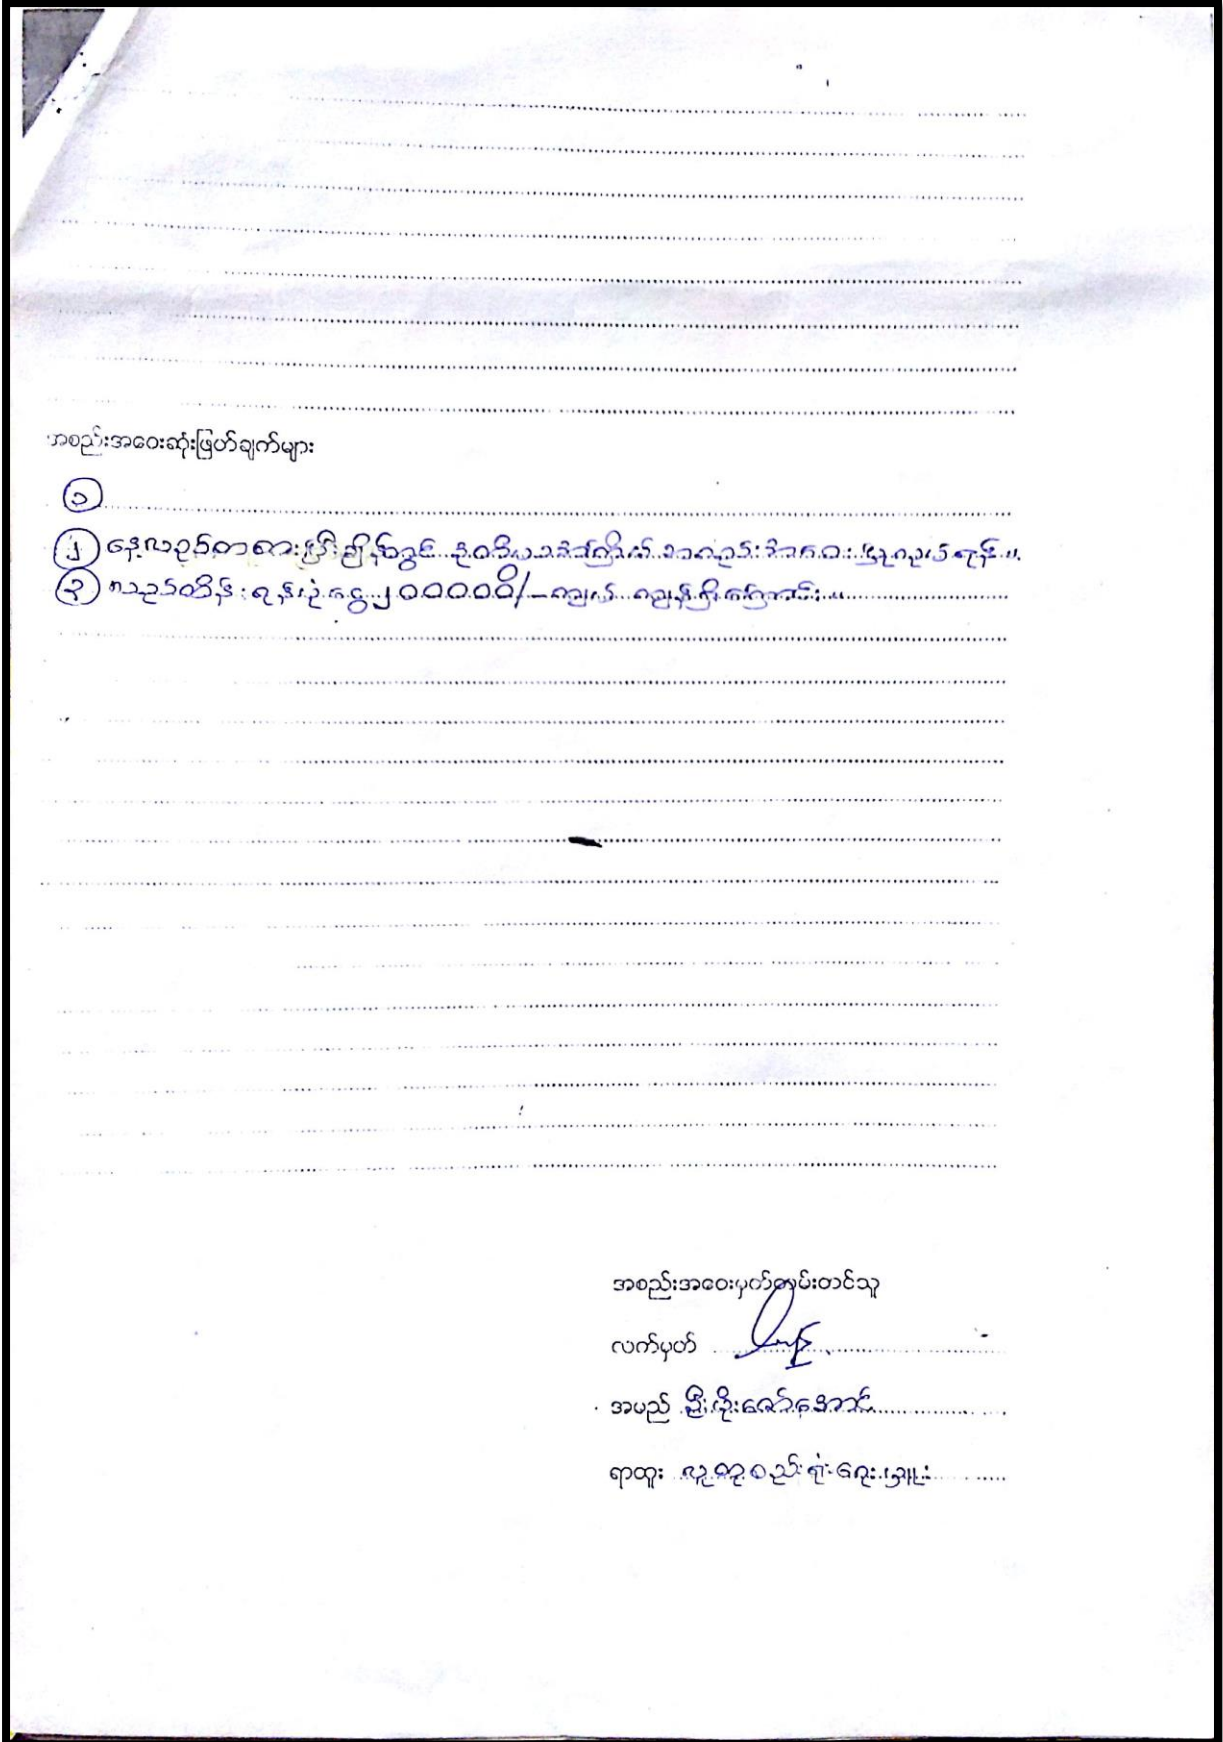 အစည်းအဝေးဆုံးဖြတ်ချက်များ
၁
၂ နေ့လည်စာစားပြီးချိန်တွင် ဒုတိယအကြိမ် အစည်းအဝေး ပြုလုပ်ရန်။
၃ ရန်ပုံငွေ ၂၀၀၀၀၀ိ/- ကျပ် ကျန်ရှိကြောင်း။
အစည်းအဝေးမှတ်တမ်းတင်သူ
လက်မှတ်
အမည် ဦးဖိုးဇော်အောင်
ရာထူး လူထုစည်းရုံးရေးမှူး